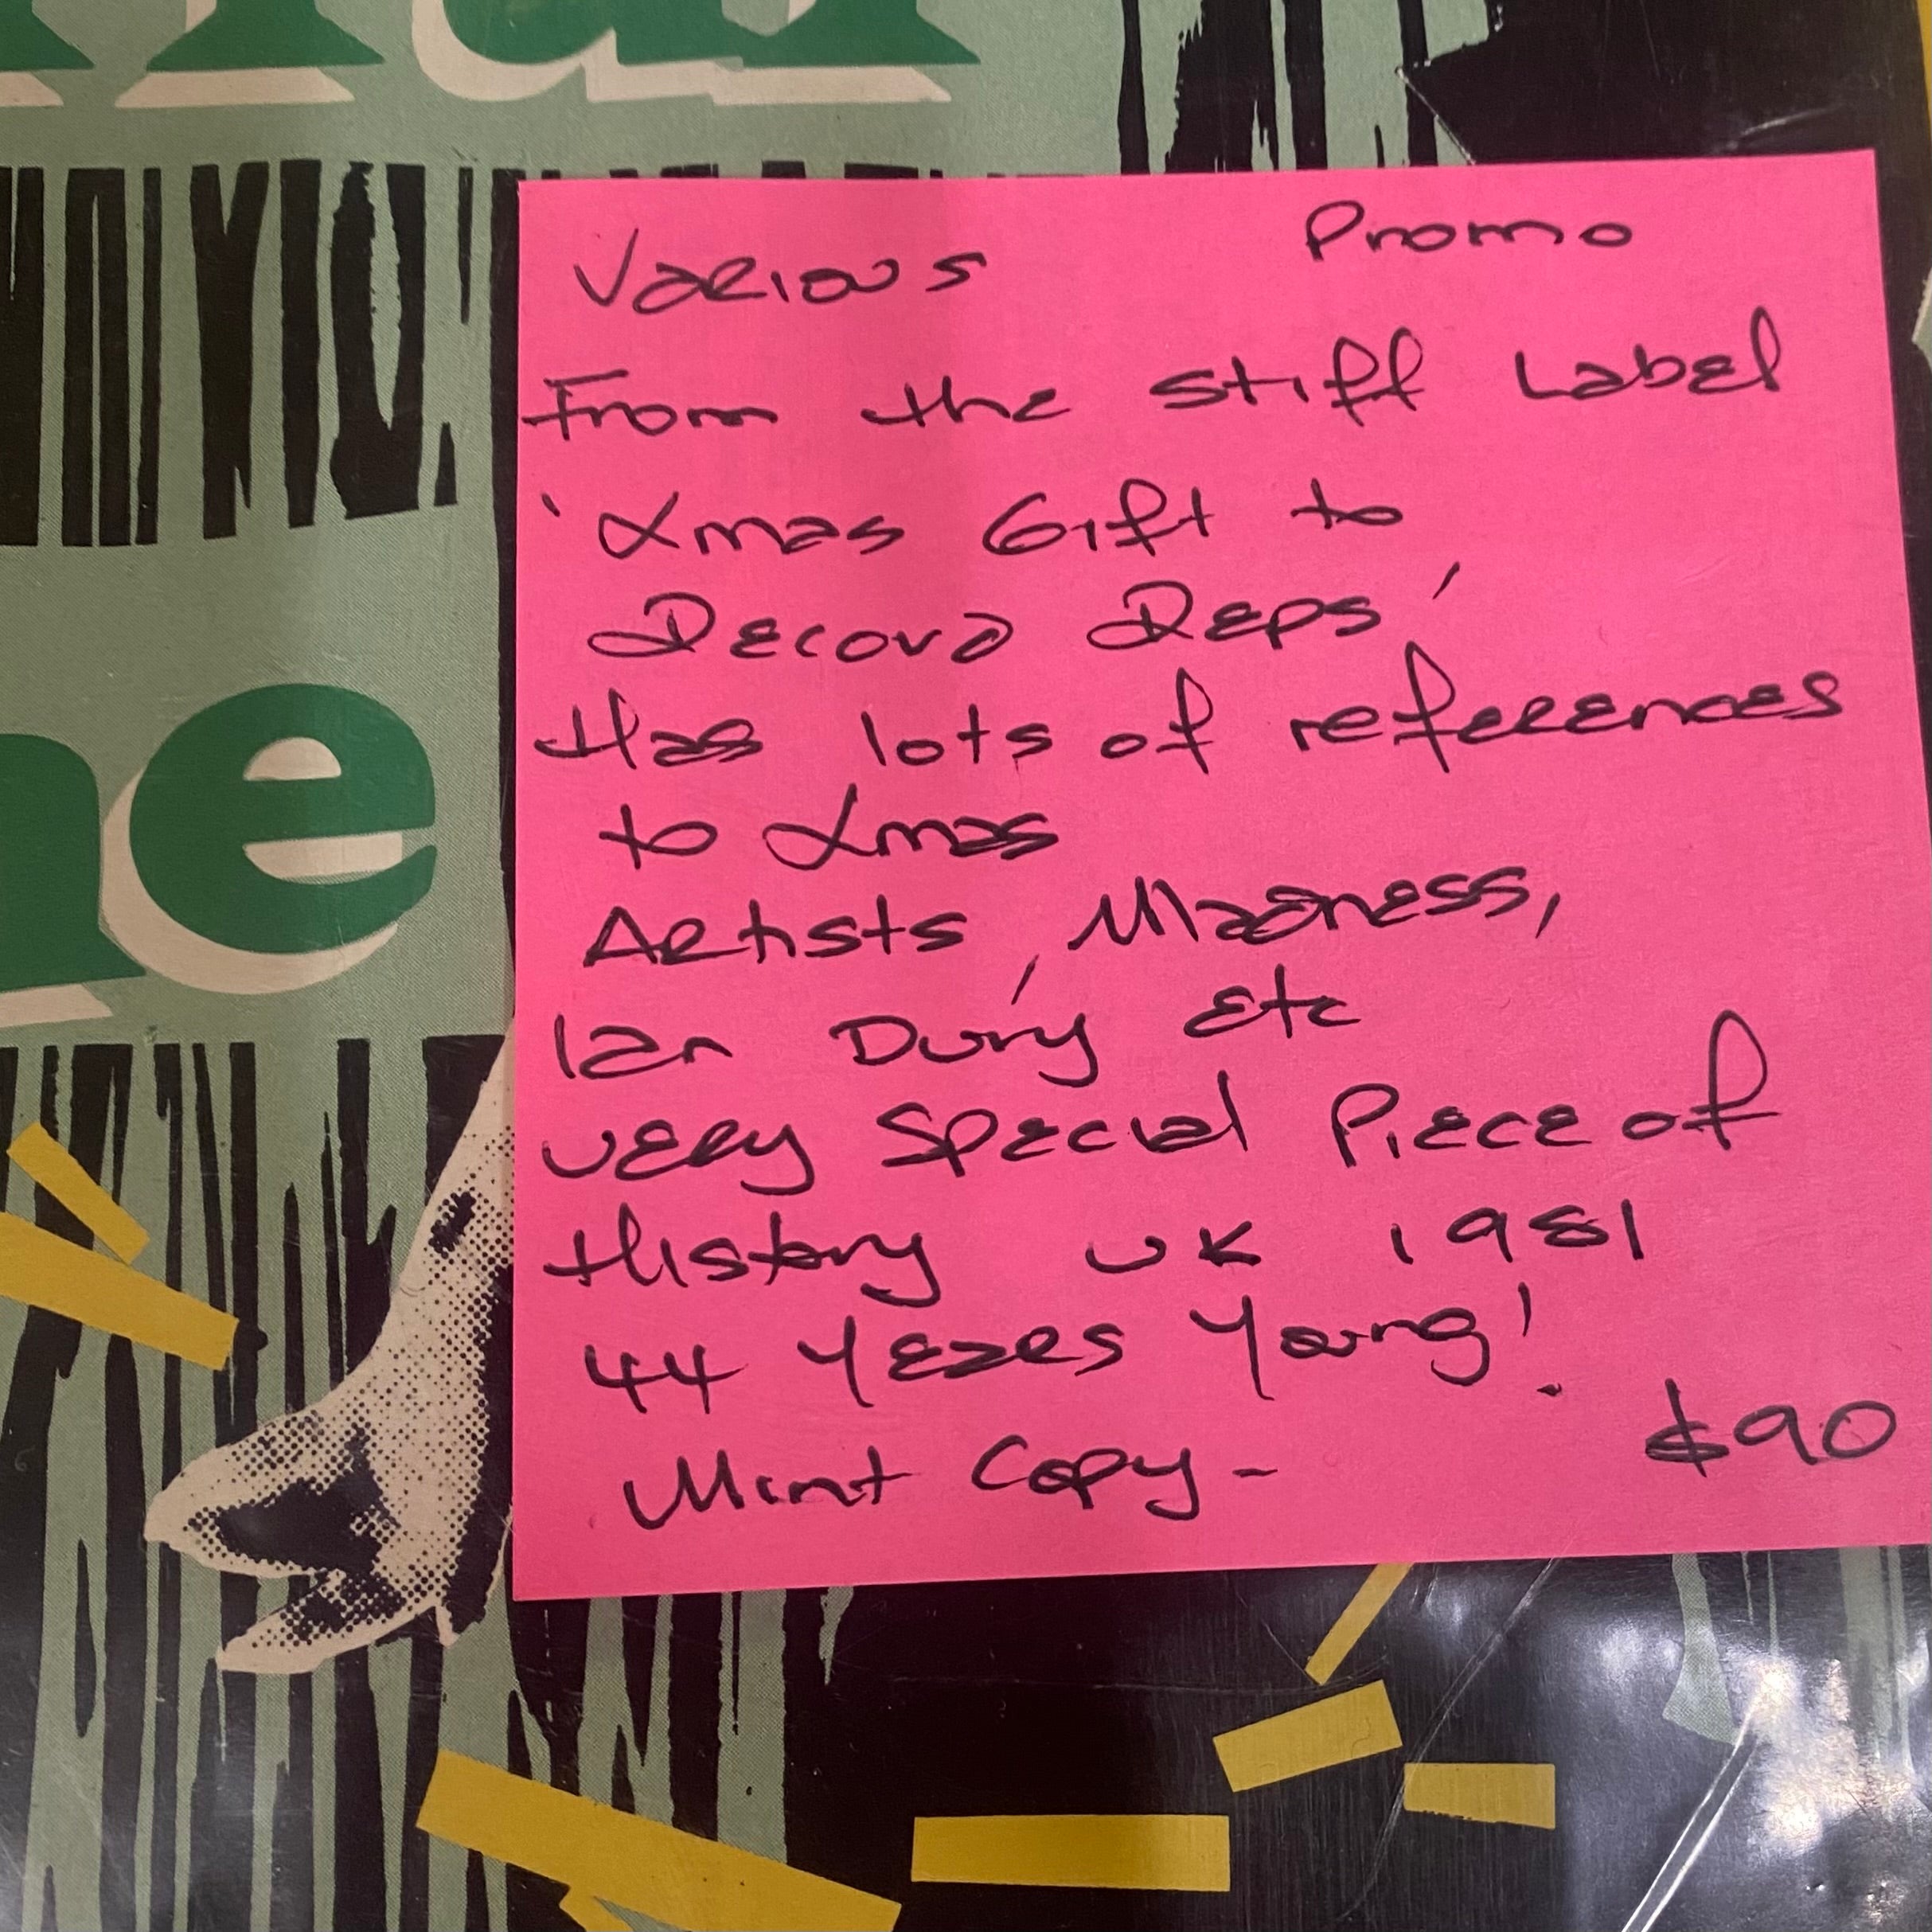 Various Promo
From the Stiff Label
'Xmas Gift to
Record Reps'
Has lots of references
to Xmas
Artists, Madness,
Ian Dury etc
very Special Piece of
History UK 1981
44 Years Young!
Mint Copy - $90
ne